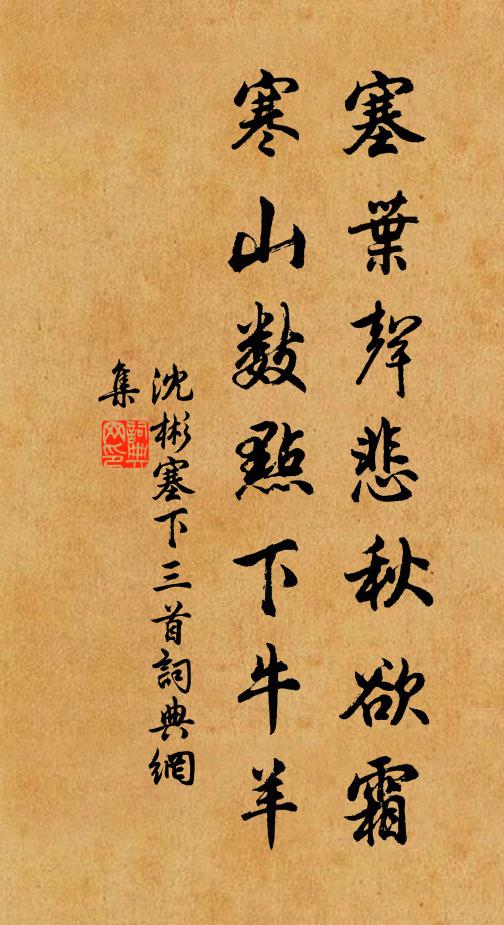 塞葉聲悲秋欲霜
寒山數點下牛羊
沈彬塞下三首詞典網
集
詞典
网印